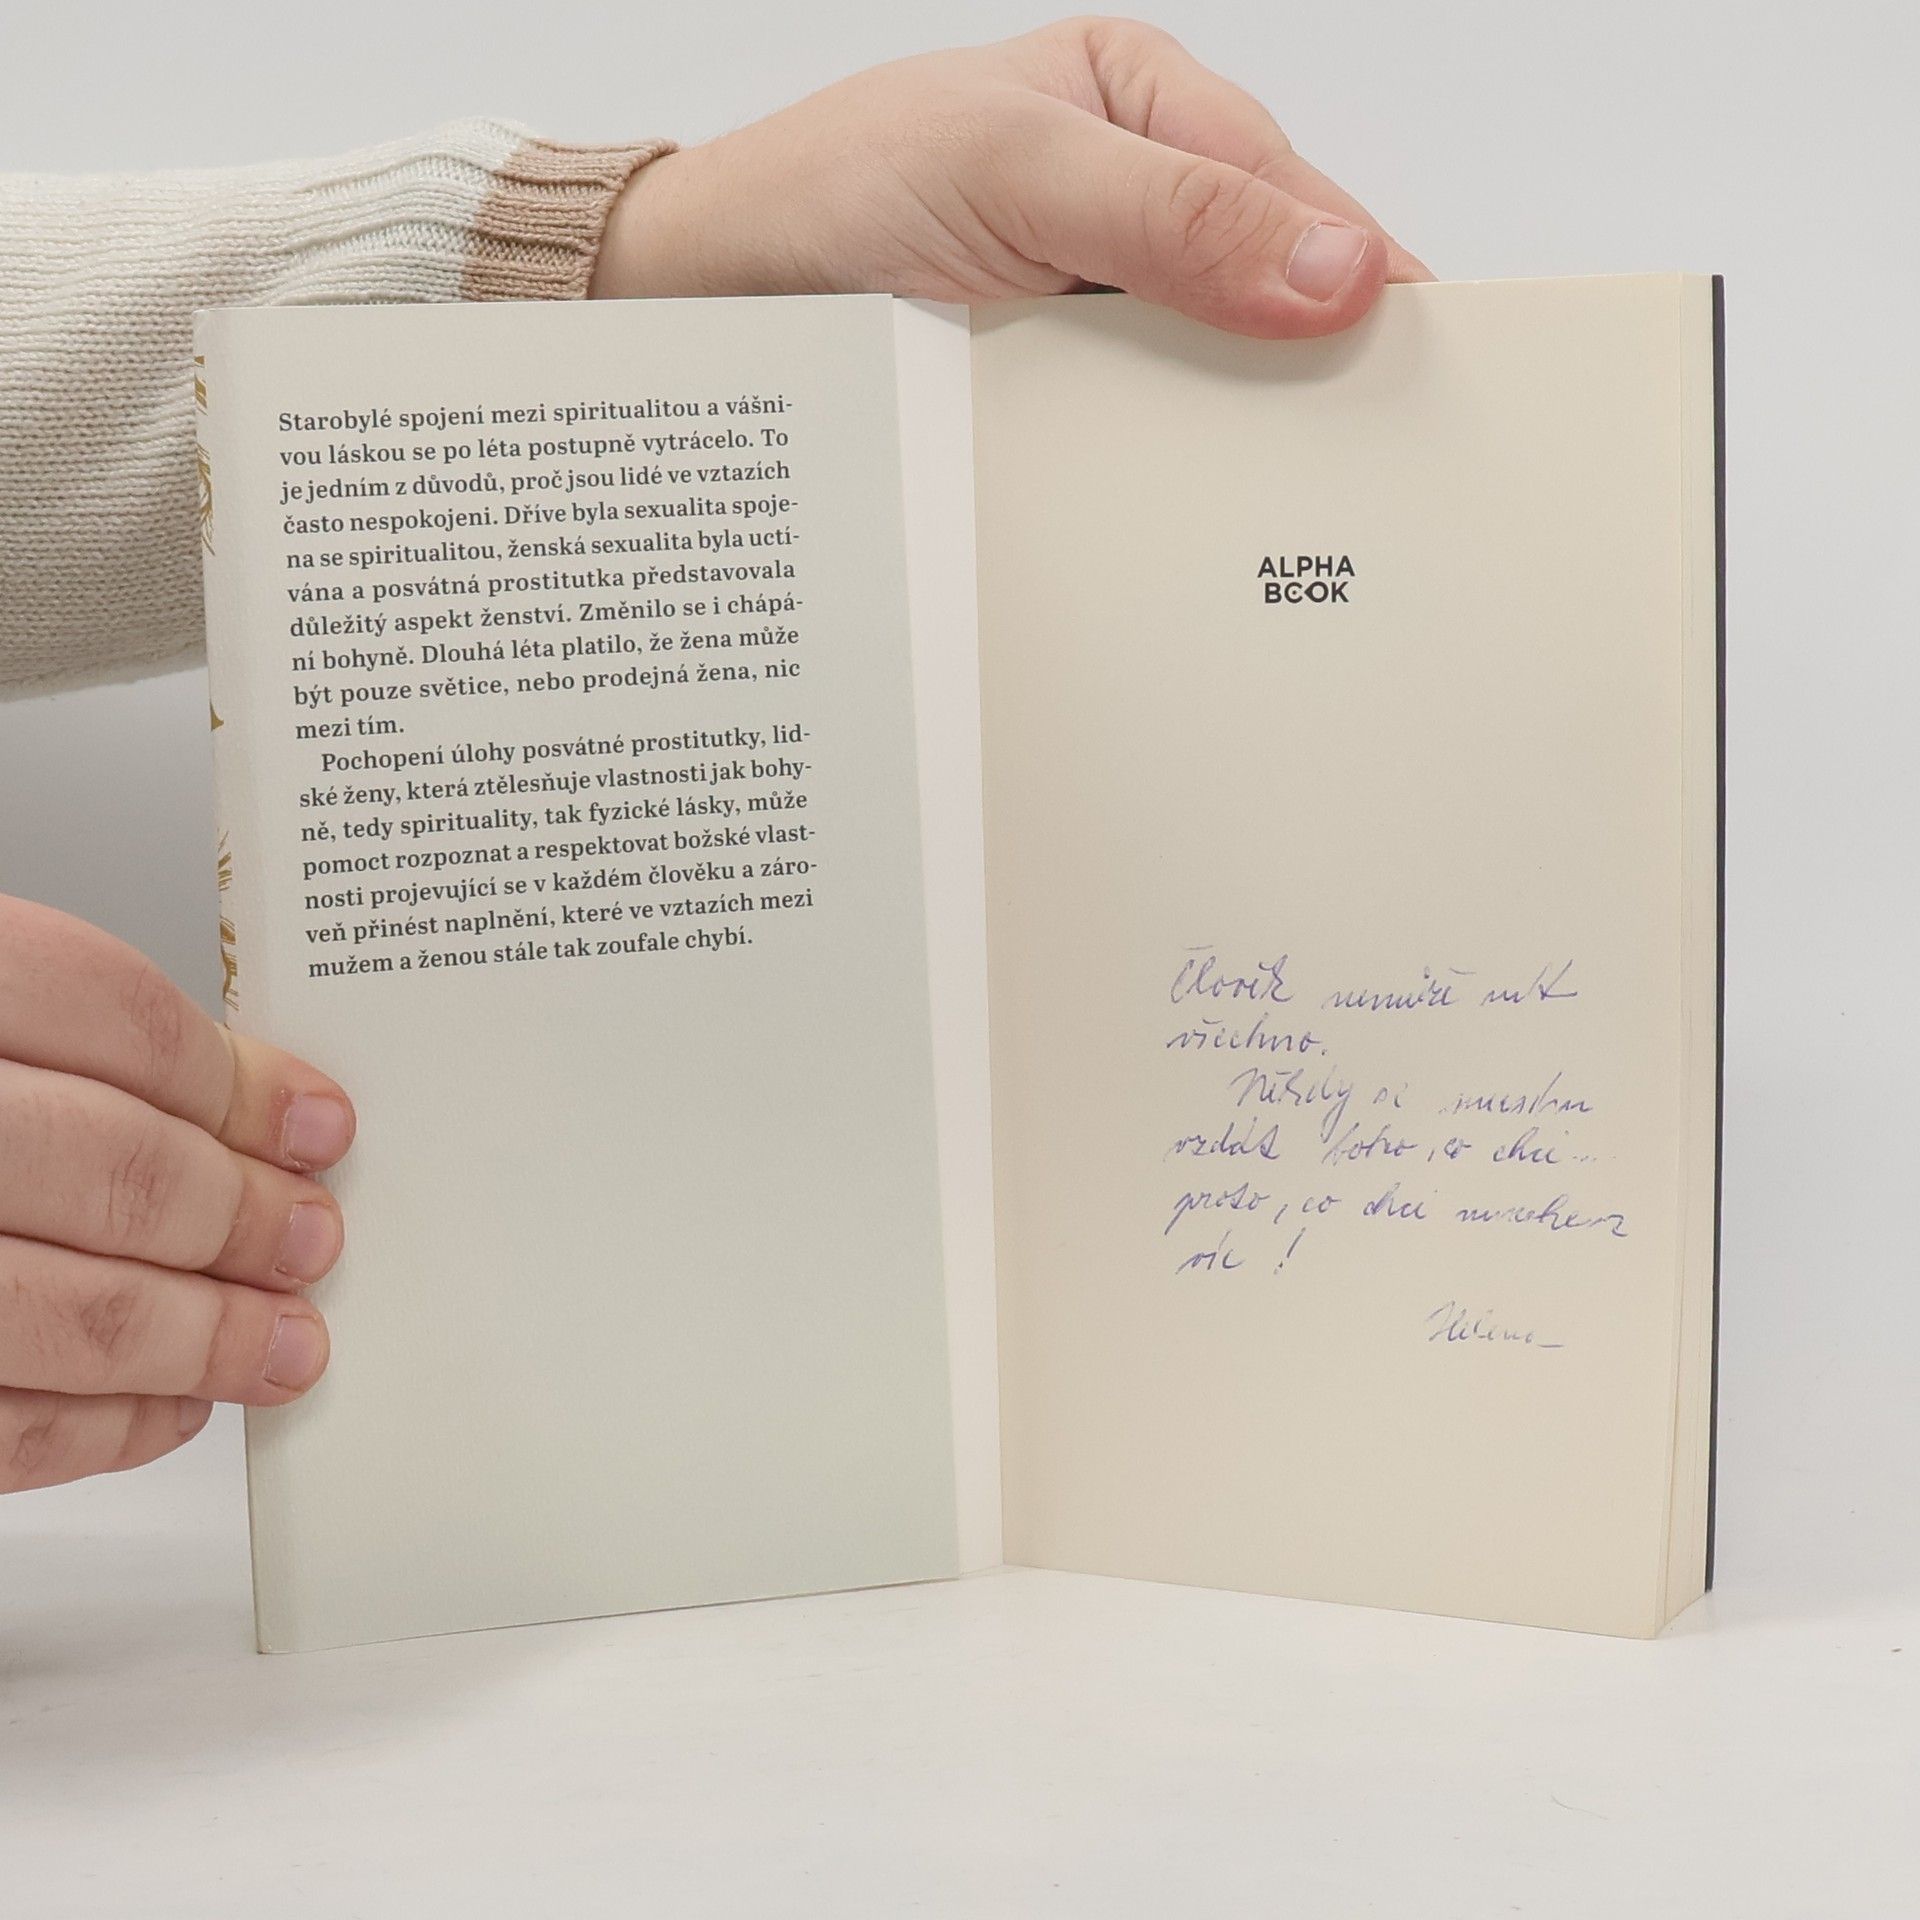 Starobylé spojení mezi spiritualitou a vášni-
vou láskou se po léta postupně vytrácelo. To
je jedním z důvodů, proč jsou lidé ve vztazích
často nespokojeni. Dříve byla sexualita spoje-
na se spiritualitou, ženská sexualita byla uctí-
vána a posvátná prostitutka představovala
důležitý aspekt ženství. Změnilo se i chápá-
ní bohyně. Dlouhá léta platilo, že žena může
být pouze světice, nebo prodejná žena, nic
mezi tím.
Pochopení úlohy posvátné prostitutky, lid-
ské ženy, která ztělesňuje vlastnosti jak bohy-
ně, tedy spirituality, tak fyzické lásky, může
pomoct rozpoznat a respektovat božské vlast-
nosti projevující se v každém člověku a záro-
veň přinést naplnění, které ve vztazích mezi
mužem a ženou stále tak zoufale chybí.
ALPHA
BOOK
Člověk nemůže mít
všechno.
Někdy se musím
vzdát toho, co chci...
proto, co chci mnohem
víc !
Helena